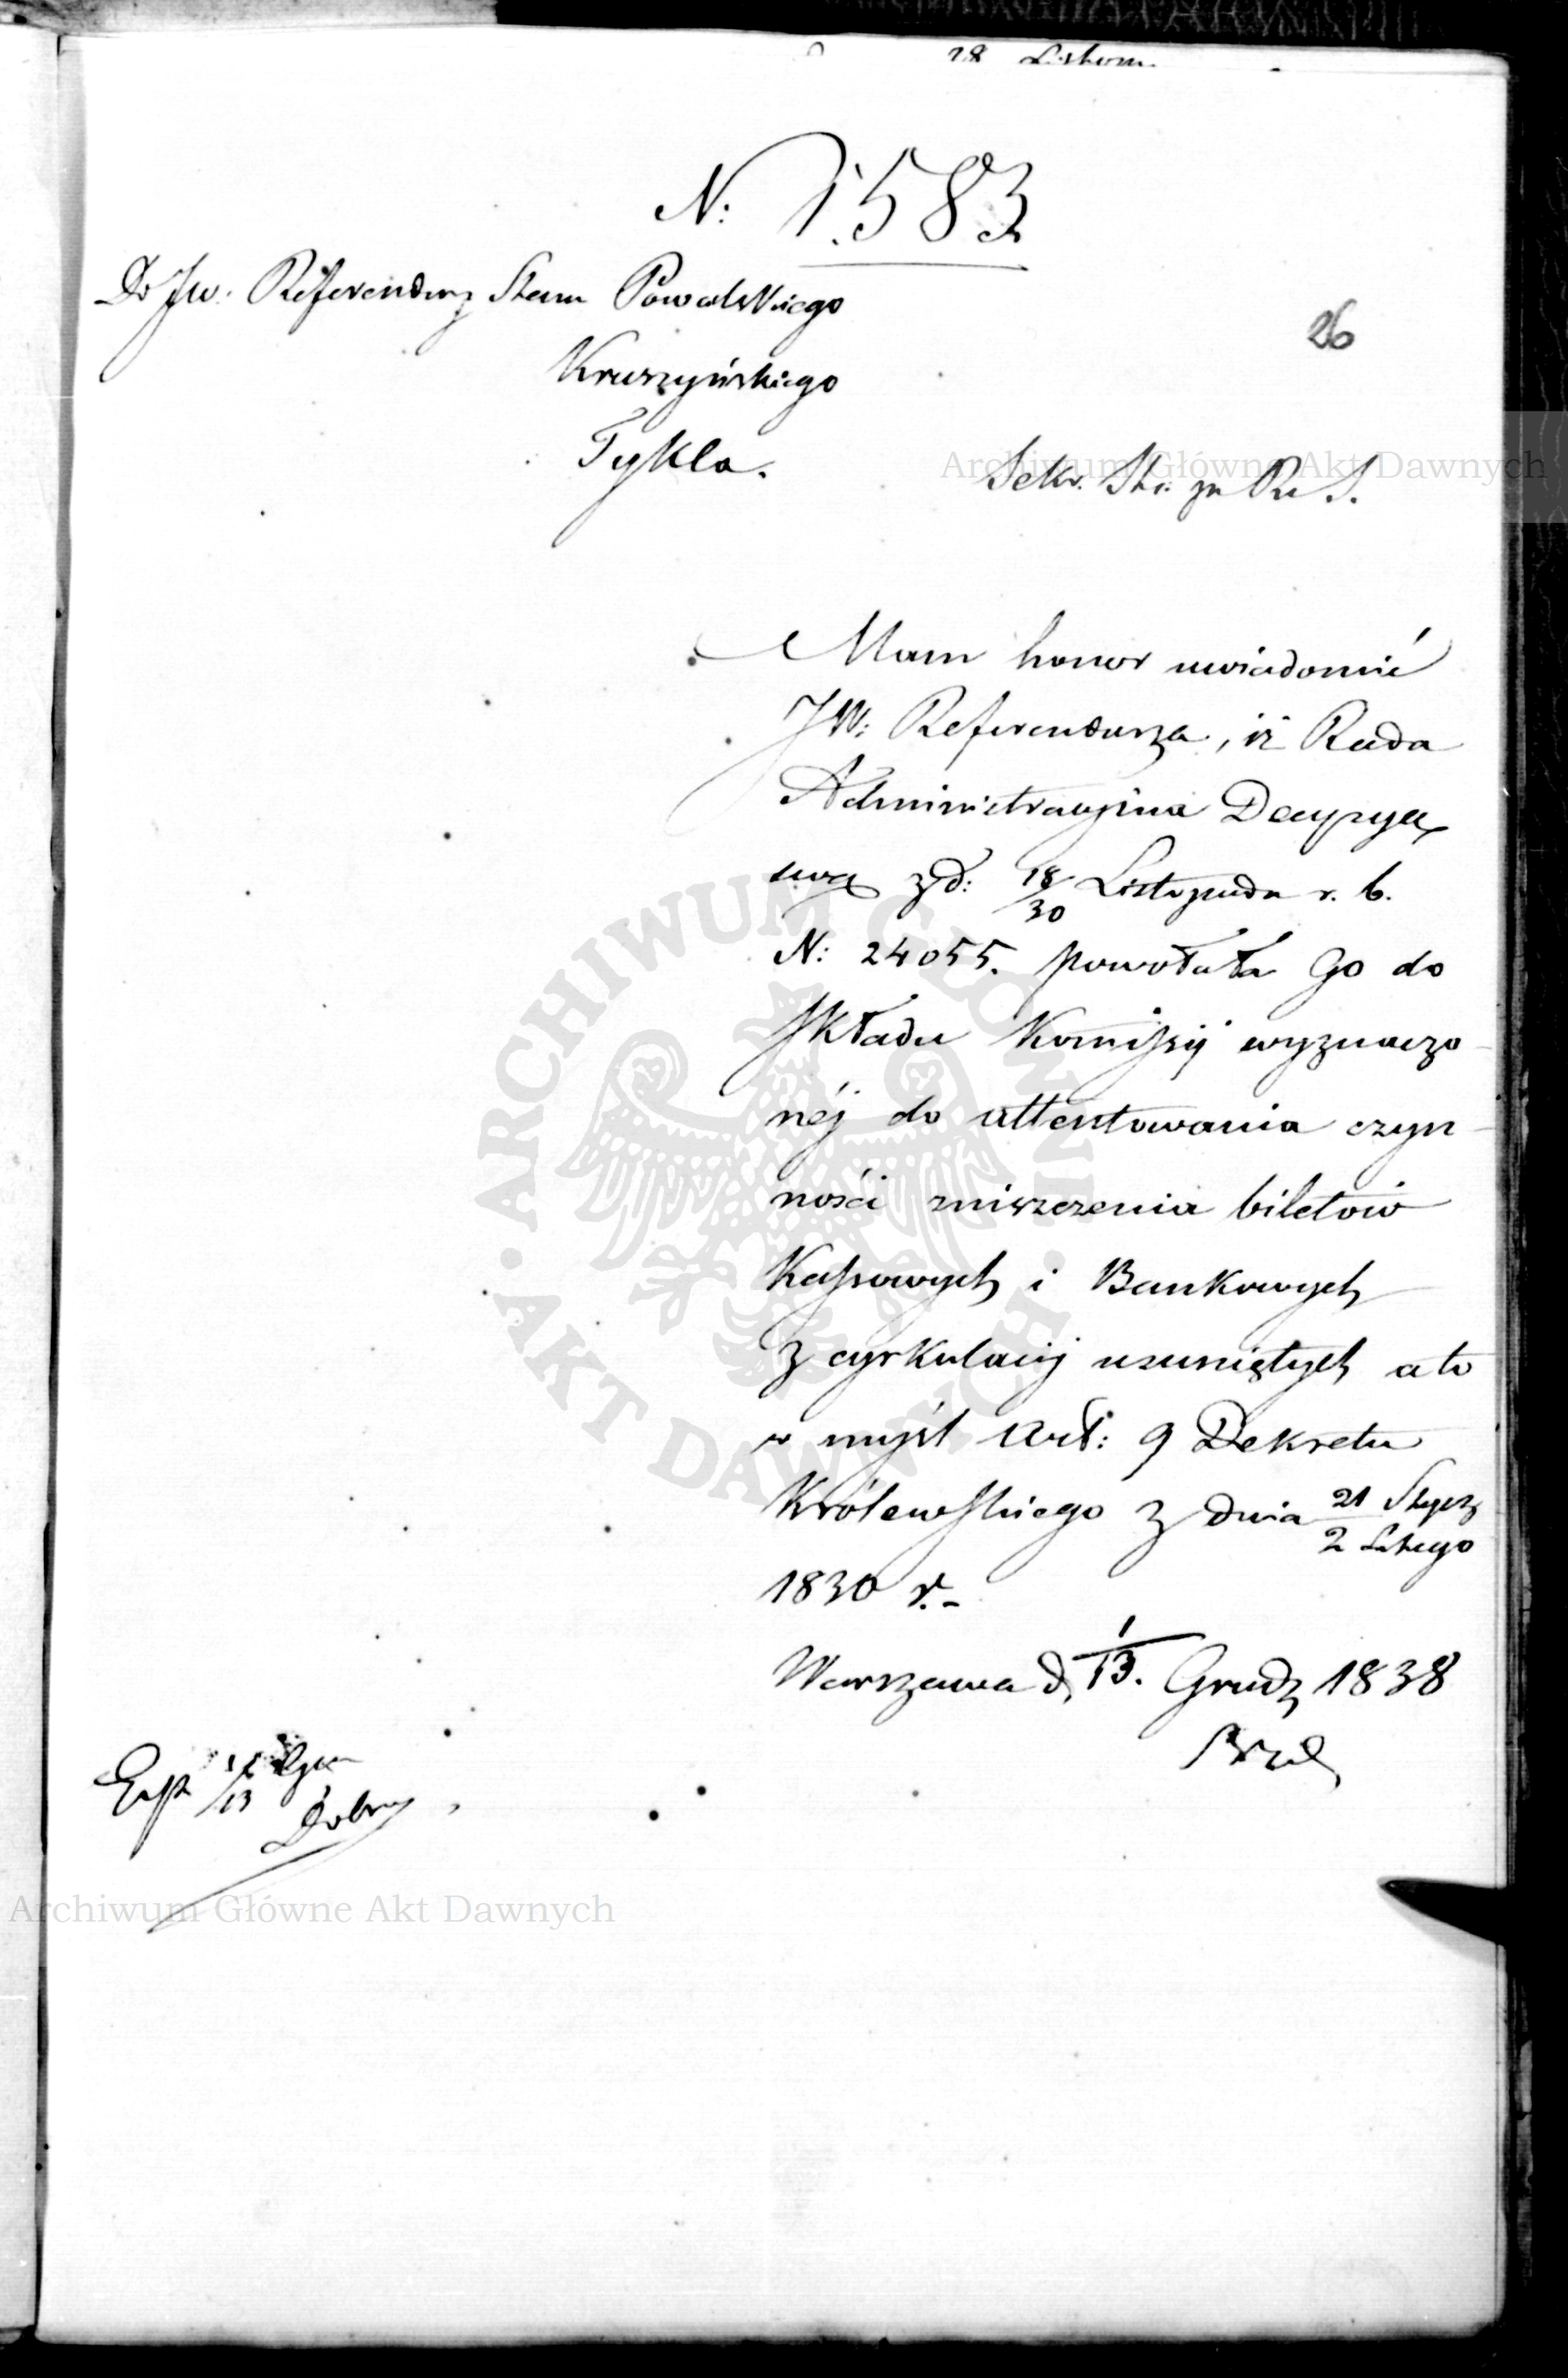 28 Listom
N: 1583
Do JW. Referendarz Stanu Powalskiego
26
Kruszyńskiego
Tykla.
Sekr. Stu
Mam honor uwiadomić
JW: Referendarza, iż Rada
Administracyjna Decyzyą
swą z d: 18/30 Listopada r. b.
N: 24055. powołała Go do
składu Komissyi wyznaczo-
néj do attestowania czyn-
ności zniszczenia biletów
Kassowych i Bankowych
z cyrkulacyi usuniętych a to
w myśl Art: 9 Dekretu
Królewskiego z dnia 21 Stycz
2 Lutego
1830 r.-
Warszawa d, 1/13. Grudz 1838
Exp 1/13
Archiwum Główne Akt Dawnych
Archiwum Główne Akt Dawnych
ARCHIWUM GŁÓWNE AKT DAWNYCH